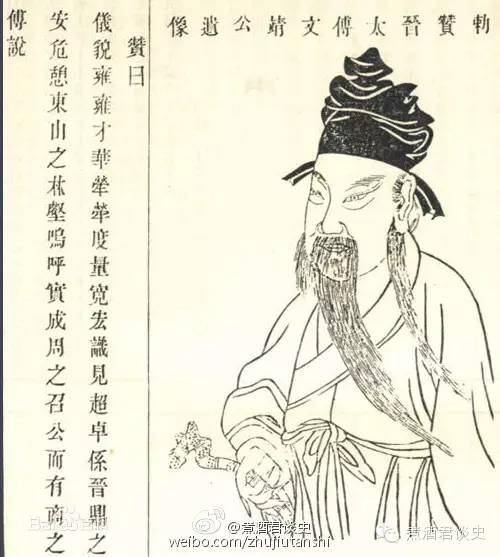 勅贊晉太傅文靖公遺像
贊曰
儀貌雍雍才華犖犖度量寬宏識見超卓係晉鼎之
安危憩東山之林壑嗚呼實成周之召公而有商之
傅說
@煮酒君谈史
weibo.com/zhujiutanshi
煮酒君谈史